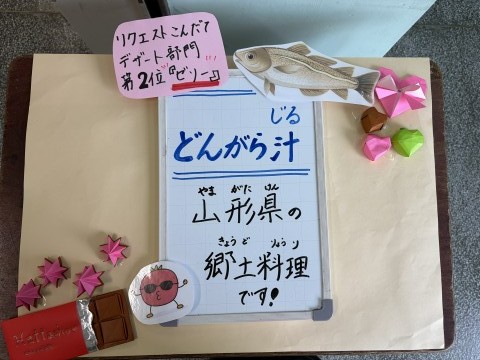 リクエストこんだて
デザート部門
第2位『ゼリー』
じる
どんがら汁
やま がた けん
山形県の
きょうど りょうり
郷土料理
です!